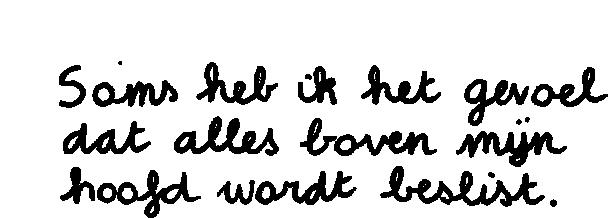 Soms heb ik het gevoel
dat alles boven mijn
hoofd wordt beslist.